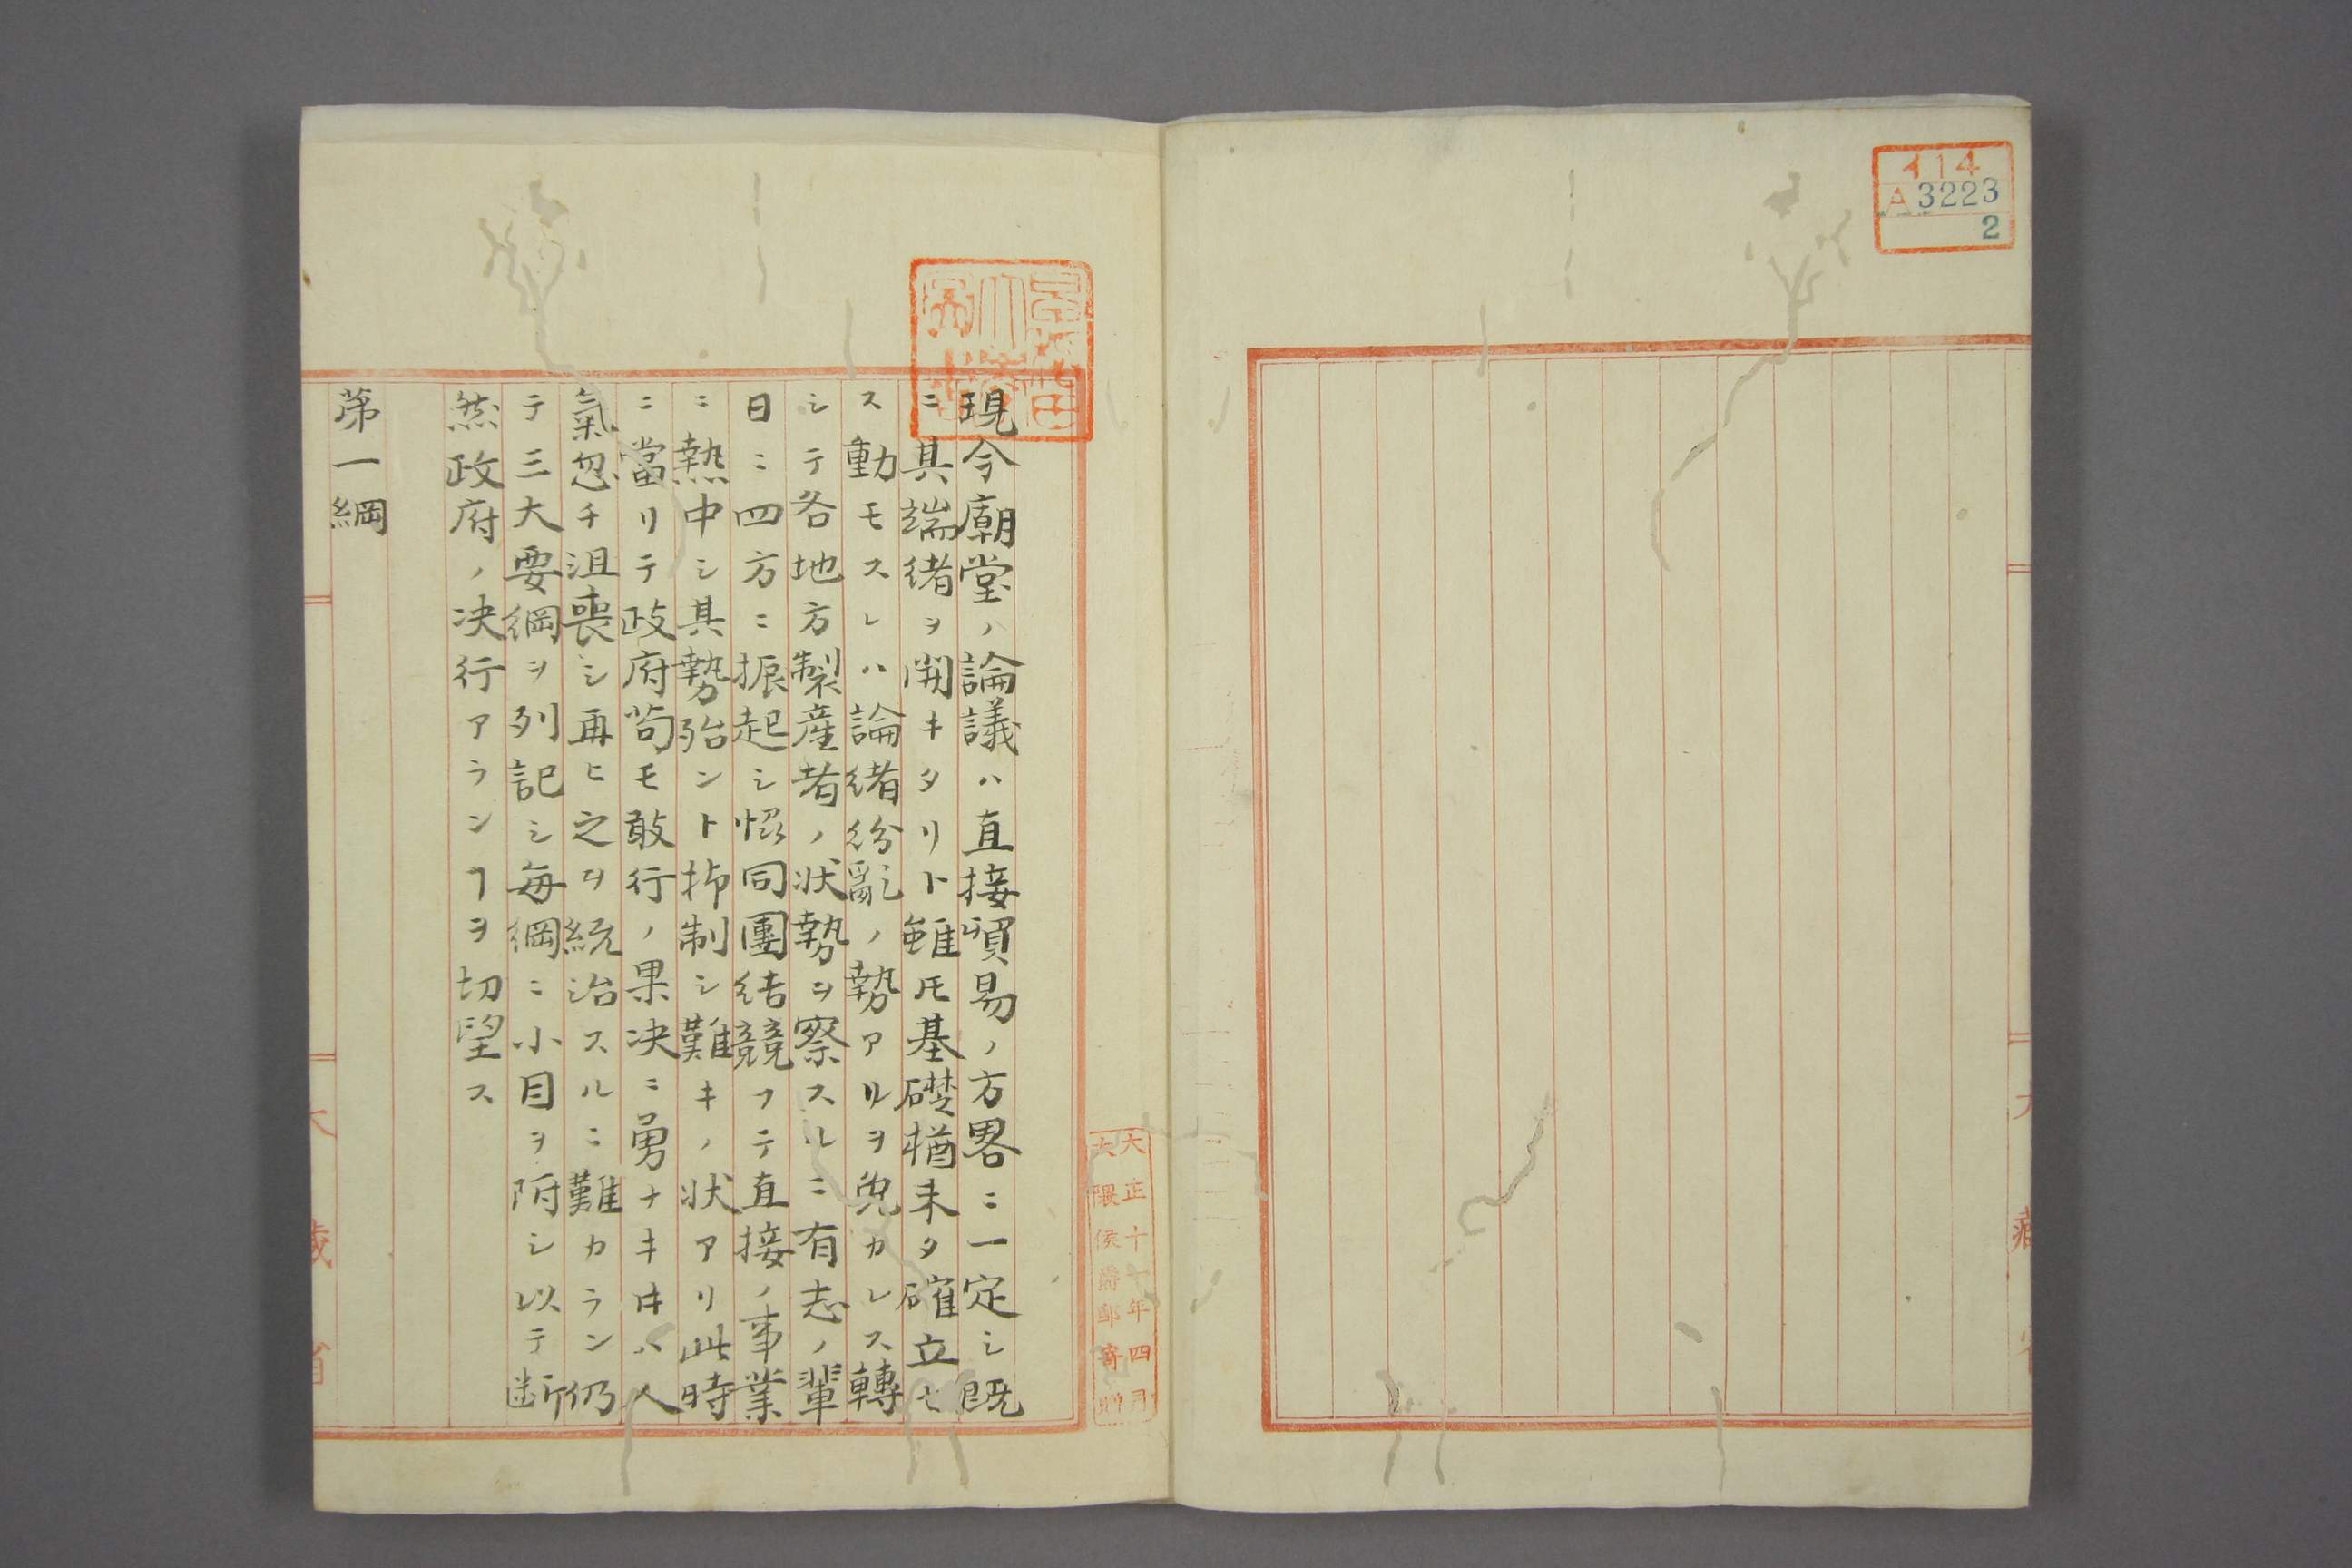 イ14
A3223
2
大藏省
大正十一年四月
大隈侯爵邸寄贈
現今廟堂ノ論議ハ直接貿易ノ方畧ニ一定シ既
ニ其端緒ヲ開キタリト雖𪜈基礎猶未タ確立セ
ス動モスレハ論緒紛亂ノ勢アルヲ免カレス轉
シテ各地方製産者ノ状勢ヲ察スルニ有志ノ輩
日ニ四方ニ振起シ協同團結競フテ直接ノ事業
ニ熱中シ其勢殆ント抑制シ難キノ状アリ此時
ニ當リテ政府苟モ敢行ノ果决ニ勇ナキ𪜈ハ人
氣忽チ沮喪シ再ヒ之ヲ統治スルニ難カラン仍
テ三大要綱ヲ列記シ毎綱ニ小目ヲ附シ以テ断
然政府ノ决行アランヿヲ切望ス
苐一綱
大藏省